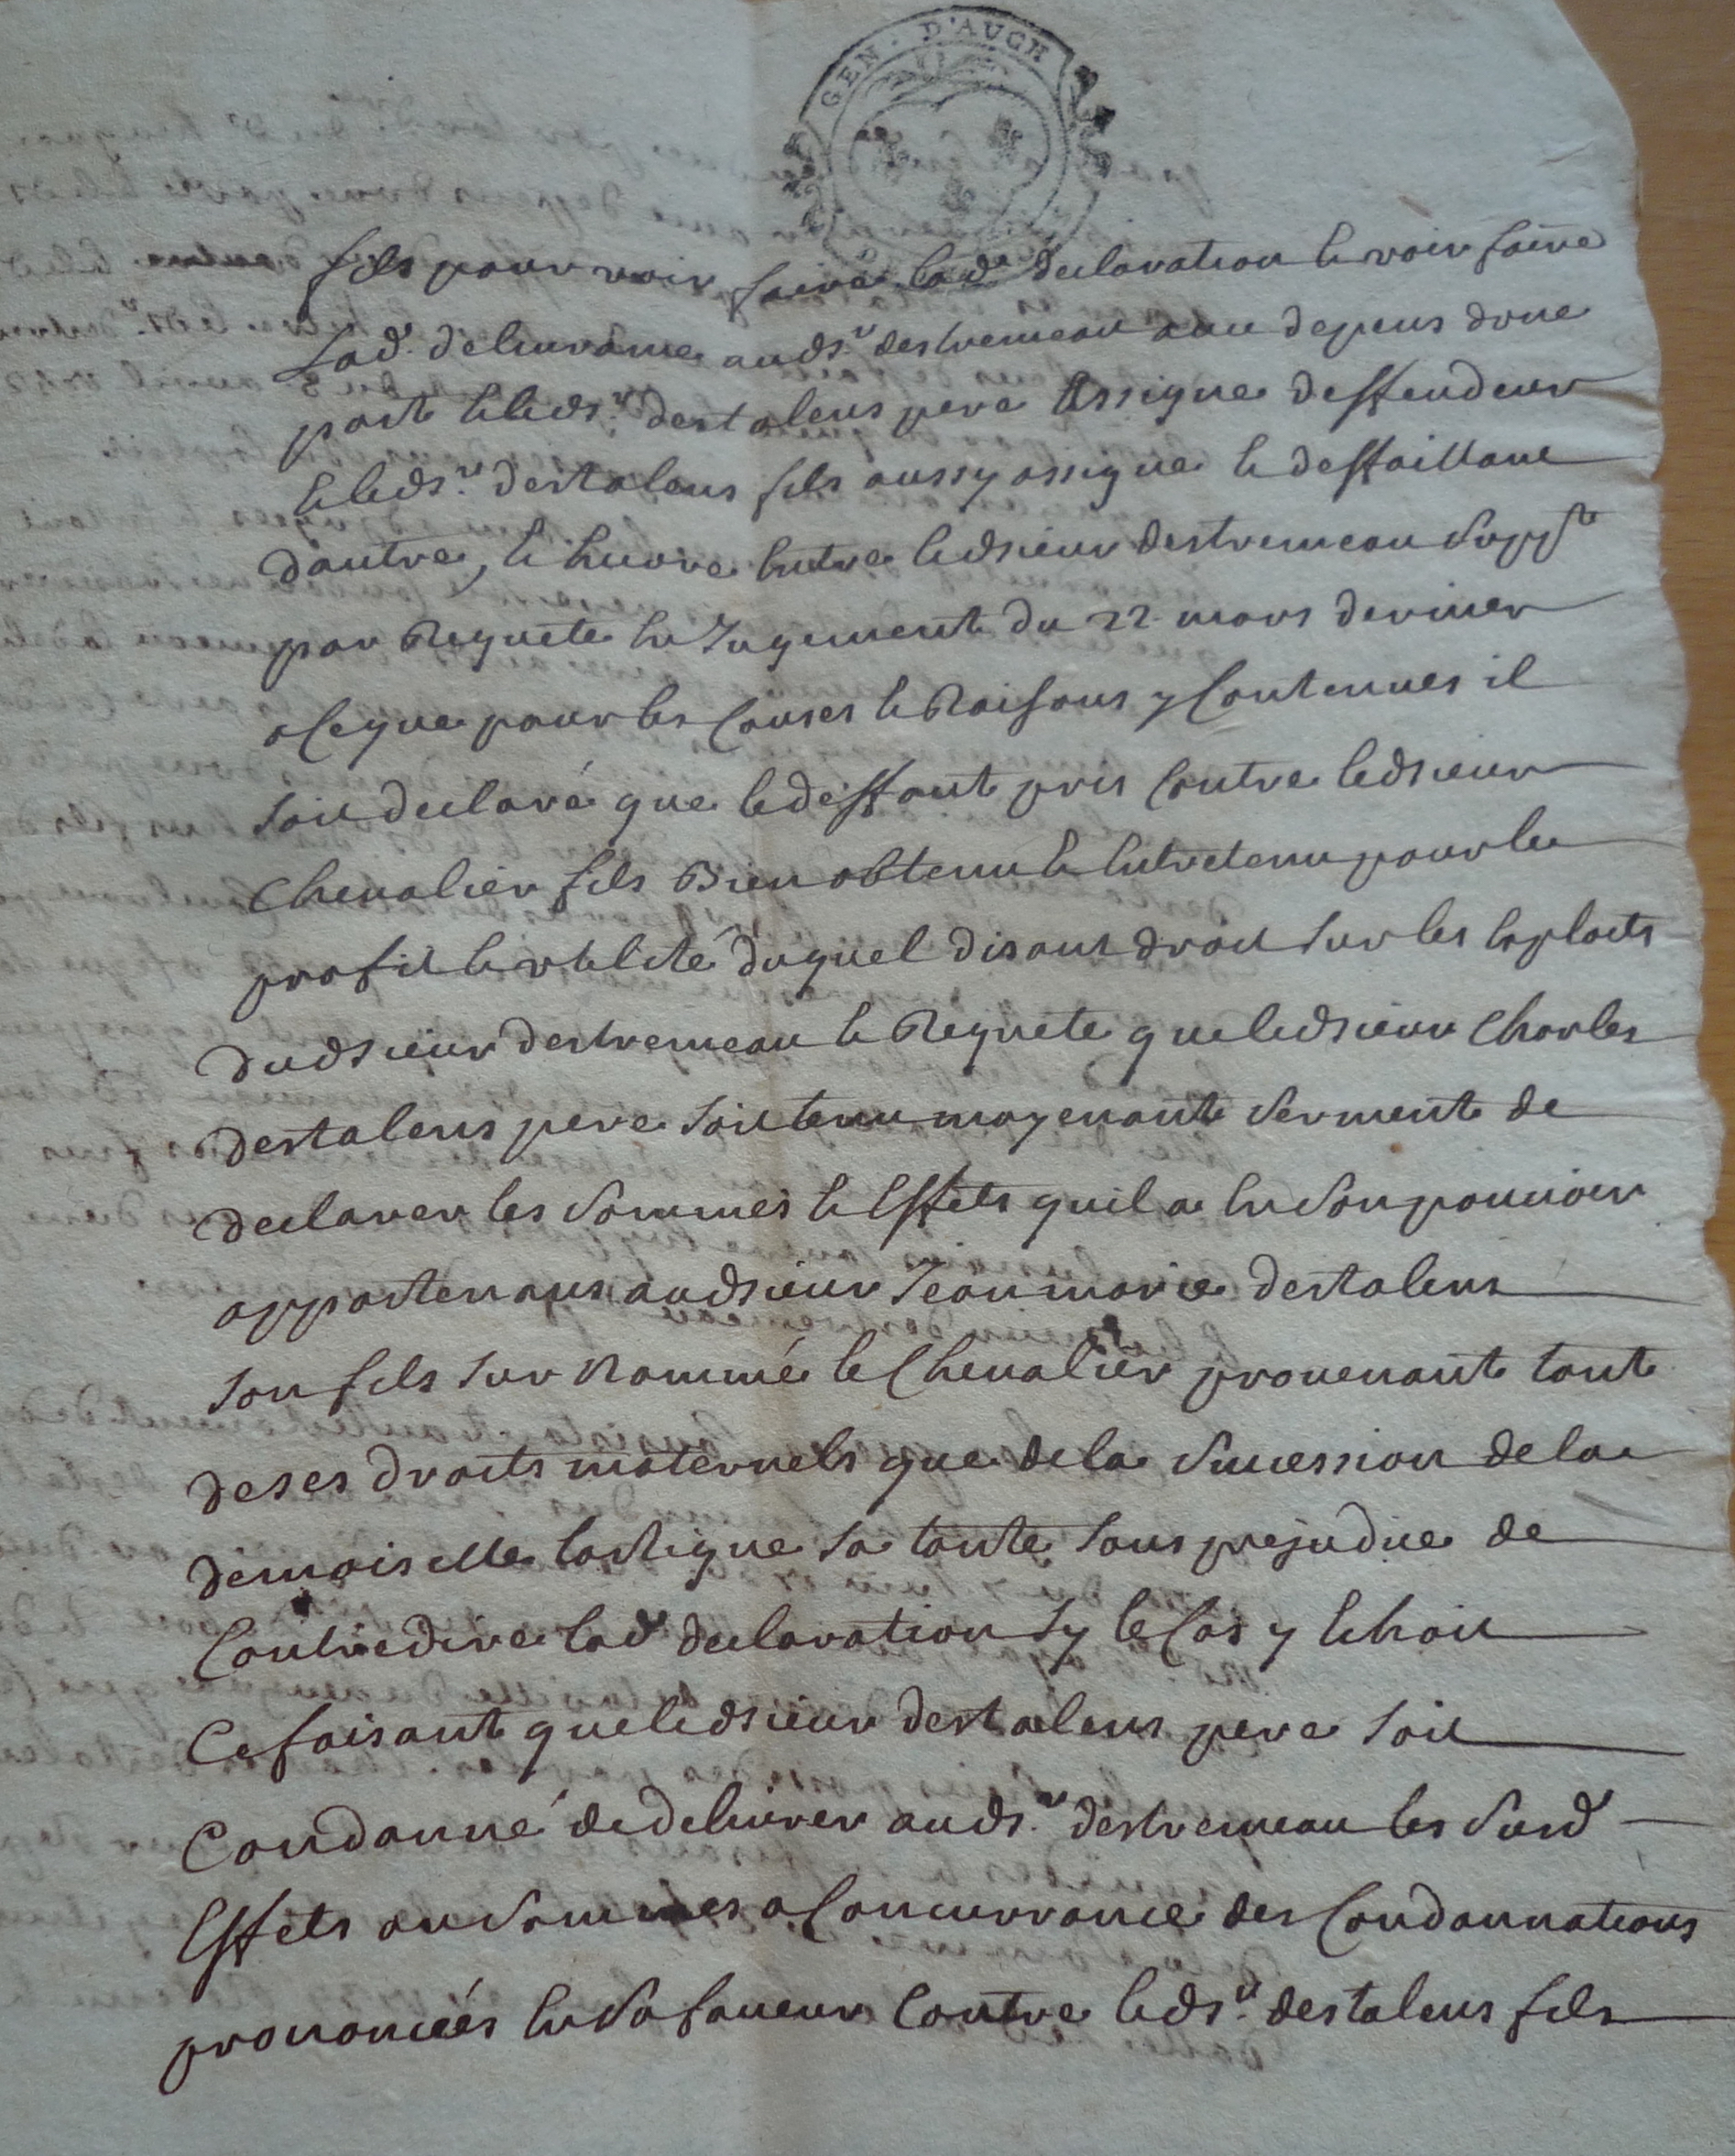 GEN. D'AUCH
fils pour voir faire lad.e declaration et voir faire
lad. deliurance auds.r destremeau auec depens dune
part et leds.r destalens pere assigné deffendeur
et leds.r destalens fils aussy assigné et deffaillant
dautre, et encore entre ledsieur destremeau supp.t
par Requete en Jugement du 22 mars dernier
a ce que pour les Causes et Raisons y Contenues il
soit declaré que le deffaut pris Contre ledsieur
Chevalier fils Bien obtenu et entretenu pour le
profit et vtelité duquel disant droit sur les exploits
dudsieur destremeau et Requete que ledsieur Charles
destalens pere soit tenu moyenant serment de
declarer les sommes et Effets quil a en son pouuoir
appartenans audsieur Jean marie destalens
son fils sur Nommé le Chevalier prouenant tant
de ses droits maternels que de la sucession de la
demoiselle lartigue sa tante sans prejudice de
Contredire lad.e declaration sy le Cas y echoit
Ce faisant que ledsieur destalens pere soit
Condanné de deliurer auds.r destremeau les susd.
Effets ou sommes a Concurrance des Condannations
prononcées en sa faueur Contre leds.r destalens fils